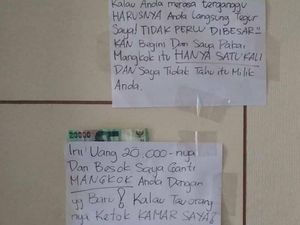 Kalau Anda merasa terganggu
HARUSNYA Anda Langsung Tegur
Saya! TIDAK PERLU DIBESAR"
KAN Begini Dan Saya Pakai
Mangkok itu HANYA SATU KALI
DAN Saya Tidak Tahu itu Milik
Anda.
20000
Ini Uang 20.000-nya
Dan Besok Saya Ganti
MANGKOK Anda Dengan
yg Baru! Kalau Tau orang
nya Ketok KAMAR SAYA!